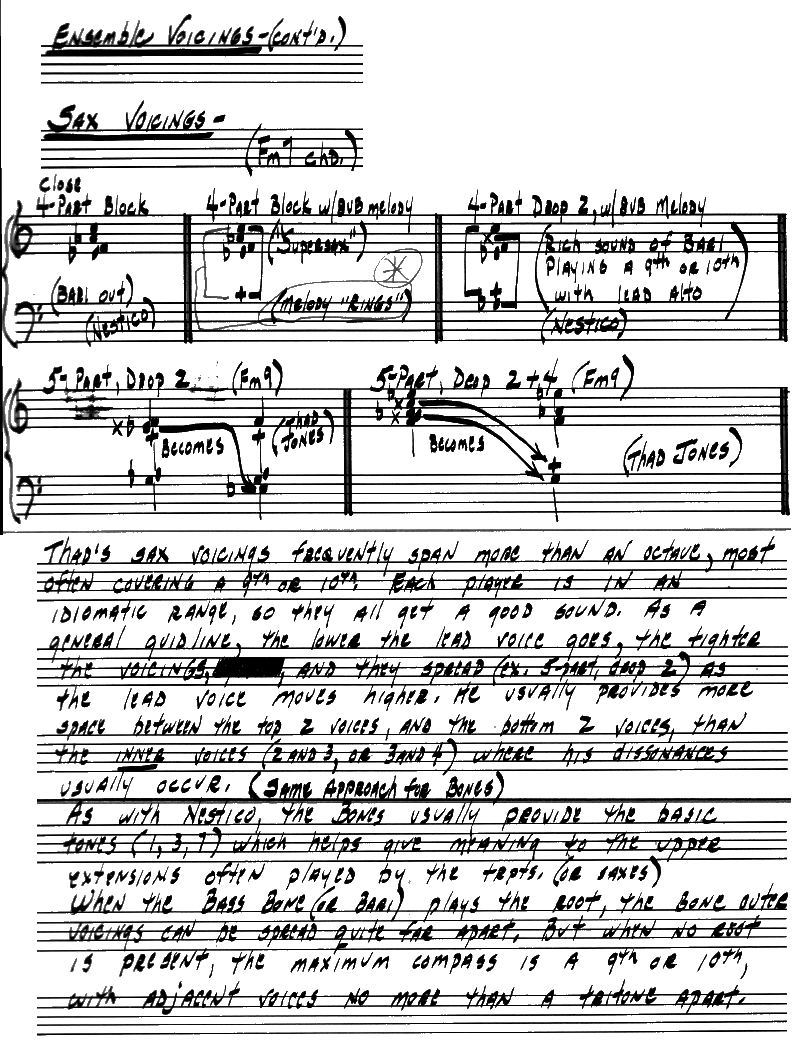 Ensemble Voicings-(cont'd.)
Sax Voicings-
(Fm7 chd.)
Close
4-Part Block
4-Part Block w/8vb melody
4-Part Drop 2, w/8vb Melody
("Supersax")
(Rich sound of Bari
playing a 9th or 10th
with lead alto
(Bari out)
(Nestico)
(Melody "Rings")
(Nestico)
5-Part, Drop 2
(Fm9)
5-Part, Drop 2+4 (Fm9)
x
Becomes
(Thad
Jones)
x
x
Becomes
(Thad Jones)
Thad's sax voicings frequently span more than an octave, most
often covering a 9th or 10th. Each player is in an
idiomatic range, so they all get a good sound. As a
general guidline, the lower the lead voice goes, the tighter
the voicings, , and they spread (ex. 5-part, drop 2) as
the lead voice moves higher. He usually provides more
space between the top 2 voices, and the bottom 2 voices, than
the inner voices (2 and 3, or 3 and 4) where his dissonances
usually occur. (Same Approach for Bones)
As with Nestico, the Bones usually provide the basic
tones (1, 3, 7) which helps give meaning to the upper
extensions often played by the trpts. (or saxes)
When the Bass Bone (or Bari) plays the root, the bone outer
voicings can be spread quite far apart. But when no root
is present, the maximum compass is a 9th or 10th,
with adjacent voices no more than a tritone apart.